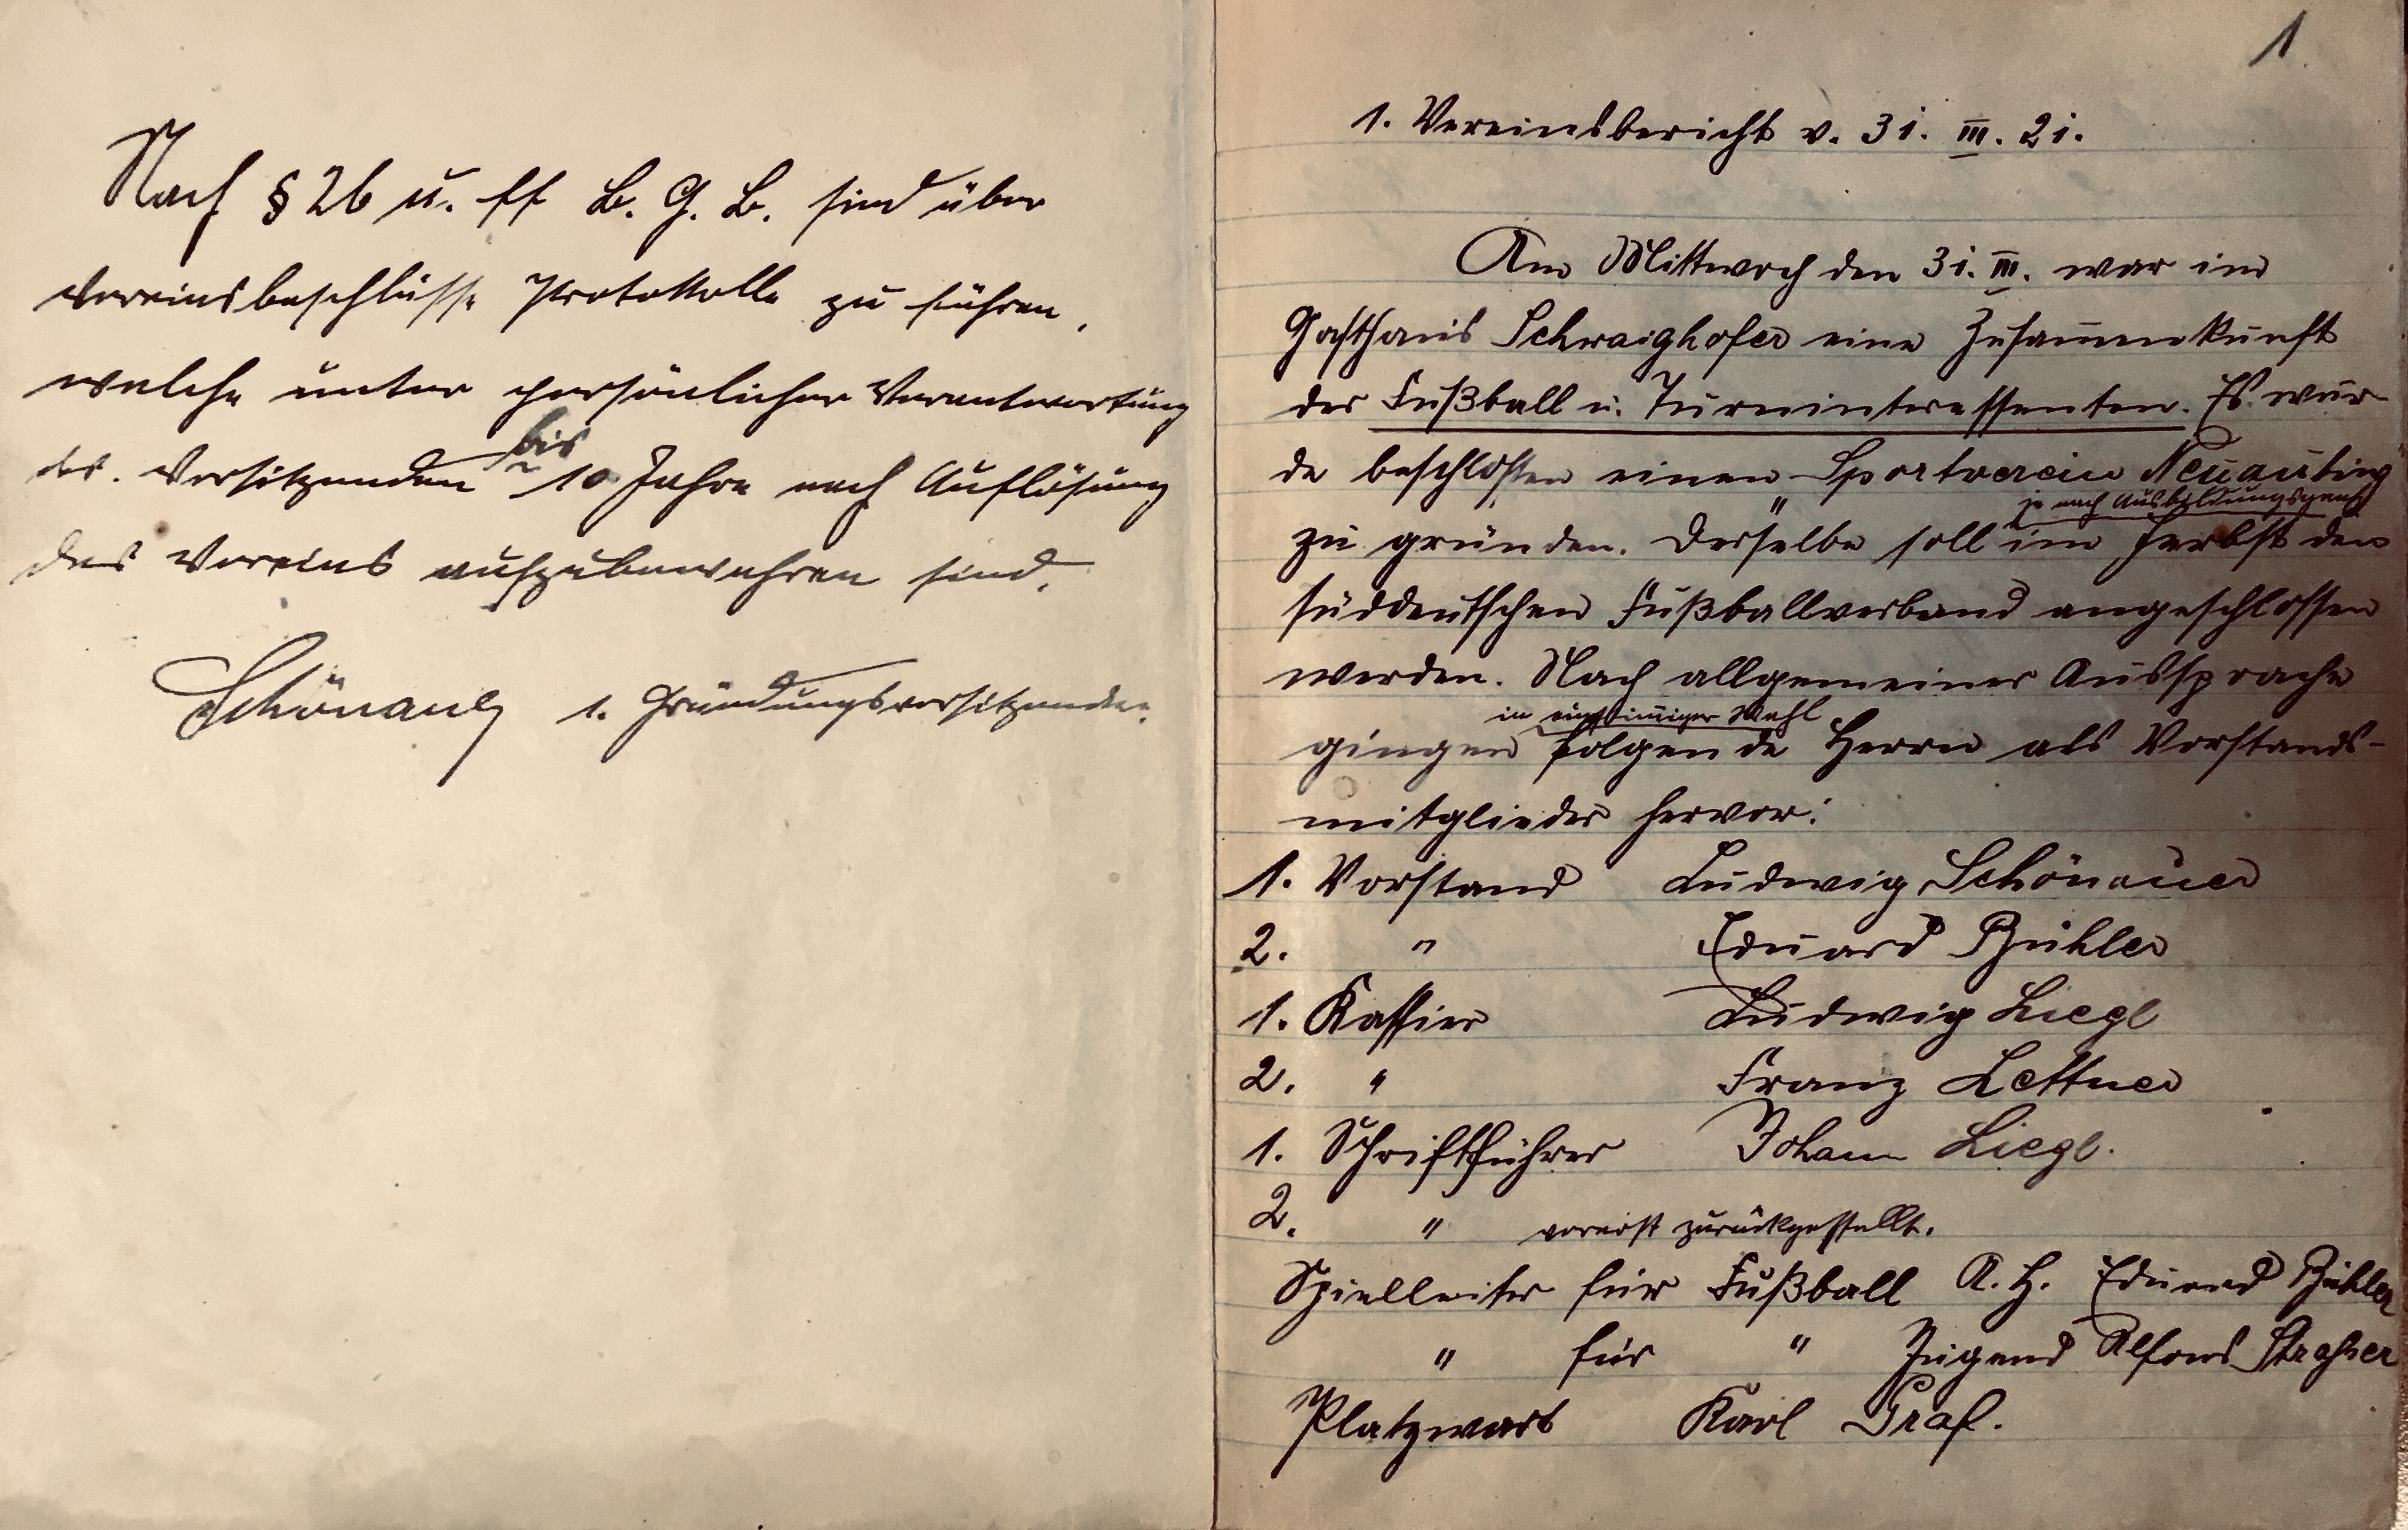 Nach § 26 u. ff B. G. B. sind über
Vereinsbeschlüsse Protokolle zu führen,
welche unter persönlicher Verantwortung
des Vorsitzenden bis 10 Jahre nach Auflösung
des Vereins aufzubewahren sind.
Schönauer 1. Gründungsvorsitzender.
1
1. Vereinsbericht v. 31. III. 21.
Am Mittwoch den 31. III. war im
Gasthaus Schwaighofer eine Zusammenkunft
der Fußball u. Turninteressenten. Es wur-
de beschlossen einen Sportverein Neuaubing
je nach Ausbildungsgang
zu gründen. Derselbe soll im Herbst den
süddeutschen Fußballverband angeschlossen
werden. Nach allgemeiner Aussprache
in einstimmiger Wahl
gingen folgende Herrn als Vorstands-
mitglieder hervor:
1. Vorstand Ludwig Schönauer
2. " Eduard Bühler
1. Kassier Ludwig Liegl
2. " Franz Lettner
1. Schriftführer Johann Liegl.
2. " vorerst zurückgestellt.
Spielleiter für Fußball A. H. Eduard Bühler
" für " Jugend Alfons Straßer
Platzwart Karl Graf.